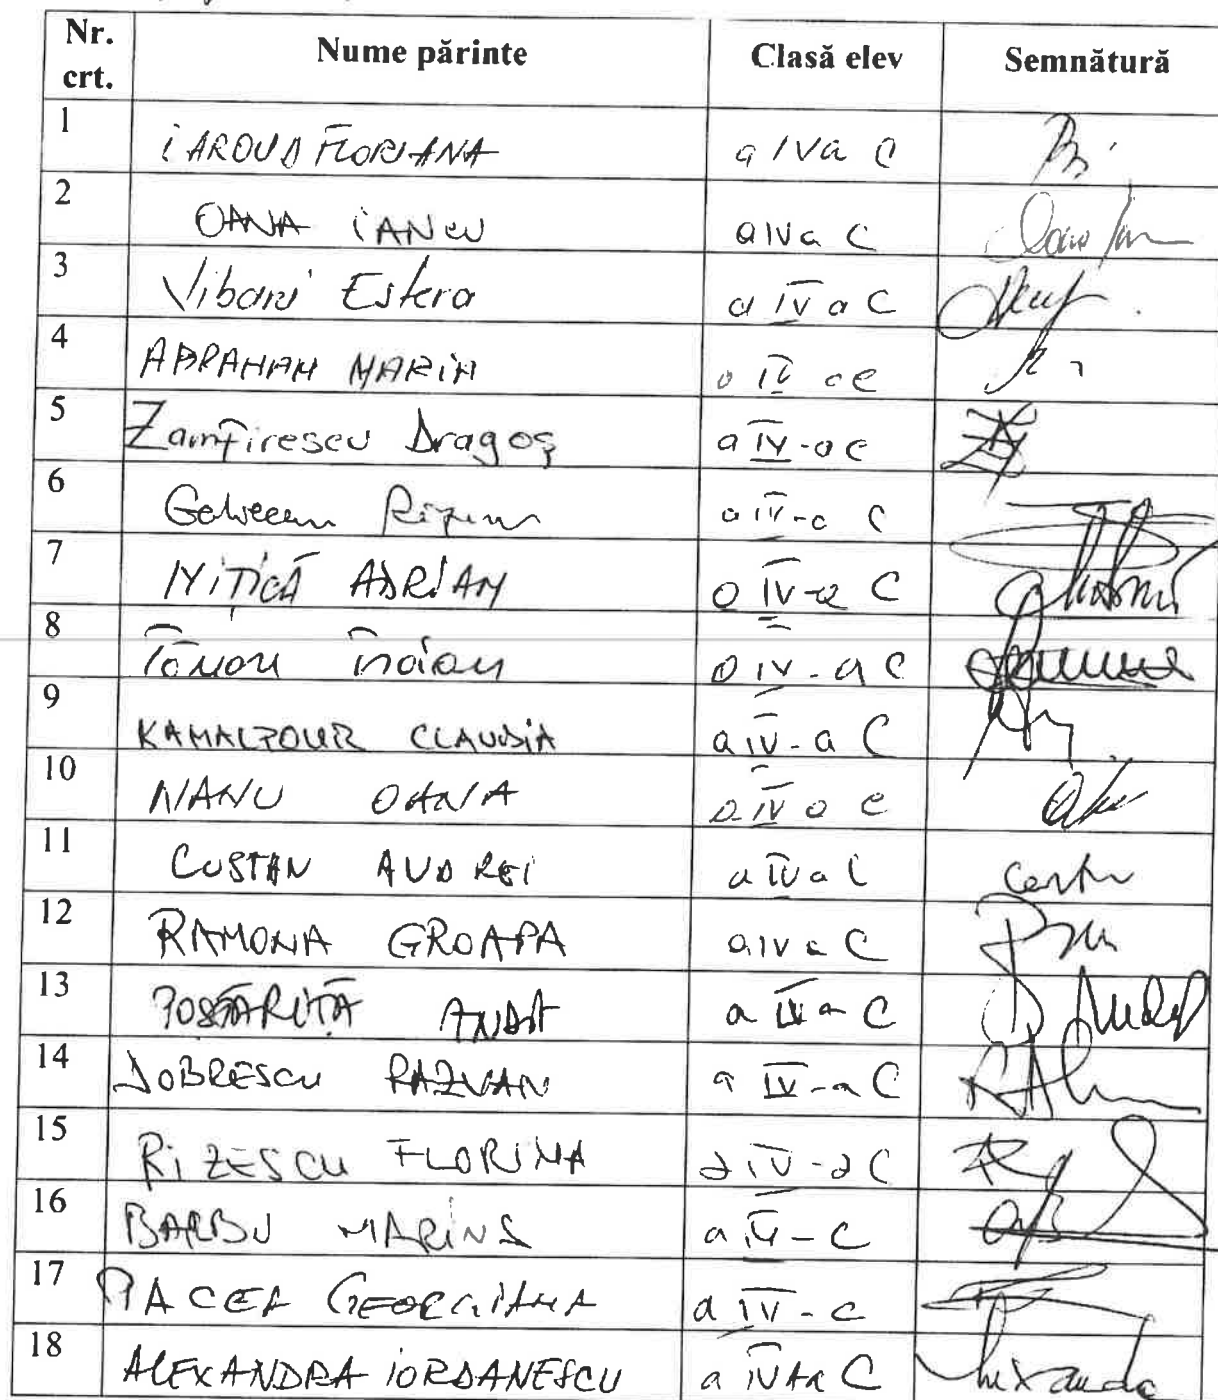 Nr. crt. Nume părinte Clasă elev Semnătură
1 FLORIANA a IVa C
2 OANA IANCU a IVa C
3 Vibari Estera a IV a C
4 ABRAHAM MARIA a IV a C
5 Zamfirescu Dragoș a IV-a C
6 a IV-a C
7 NITICĂ ADRIAN a IV-a C
8 a IV-a C
9 KAMALPOUR CLAUDIA a IV-a C
10 NANU OANA a IV a C
11 COSTAN ANDREI a IV a C
12 RAMONA GROAPA a IVa C
13 POSTĂRIȚĂ ANDA a IV a C
14 DOBRESCU RAZVAN a IV-a C
15 RIZESCU FLORINA a IV-a C
16 BARBU MARINA a IV-C
17 GEORGIANA a IV-C
18 ALEXANDRA IORDANESCU a IV-a C